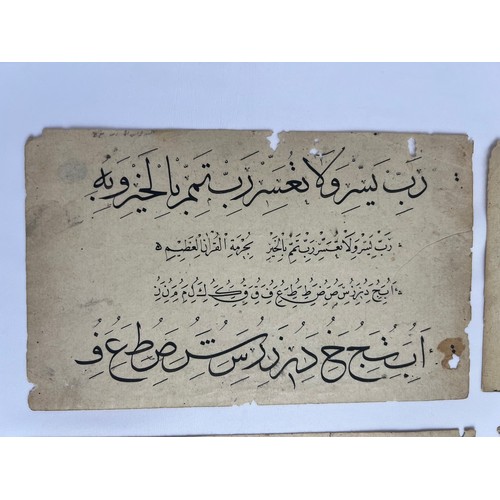 رَبِّ يَسِّرْ وَلَا تُعَسِّرْ رَبِّ تَمِّمْ بِالْخَيْرِ وَبِهِ
رَبِّ يَسِّرْ وَلَا تُعَسِّرْ رَبِّ تَمِّمْ بِالْخَيْرِ بِحُرْمَةِ الْقُرْآنِ الْعَظِيمِ
ا ب ج د ر ز س ص ض ط ع ف ق ك ل م ن
ا ب ت ج خ د ر ز س ش ص ط ع ف